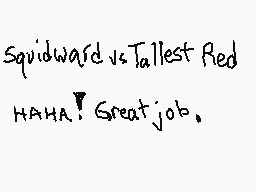 Squidward vs Tallest Red
HAHA! Great job.